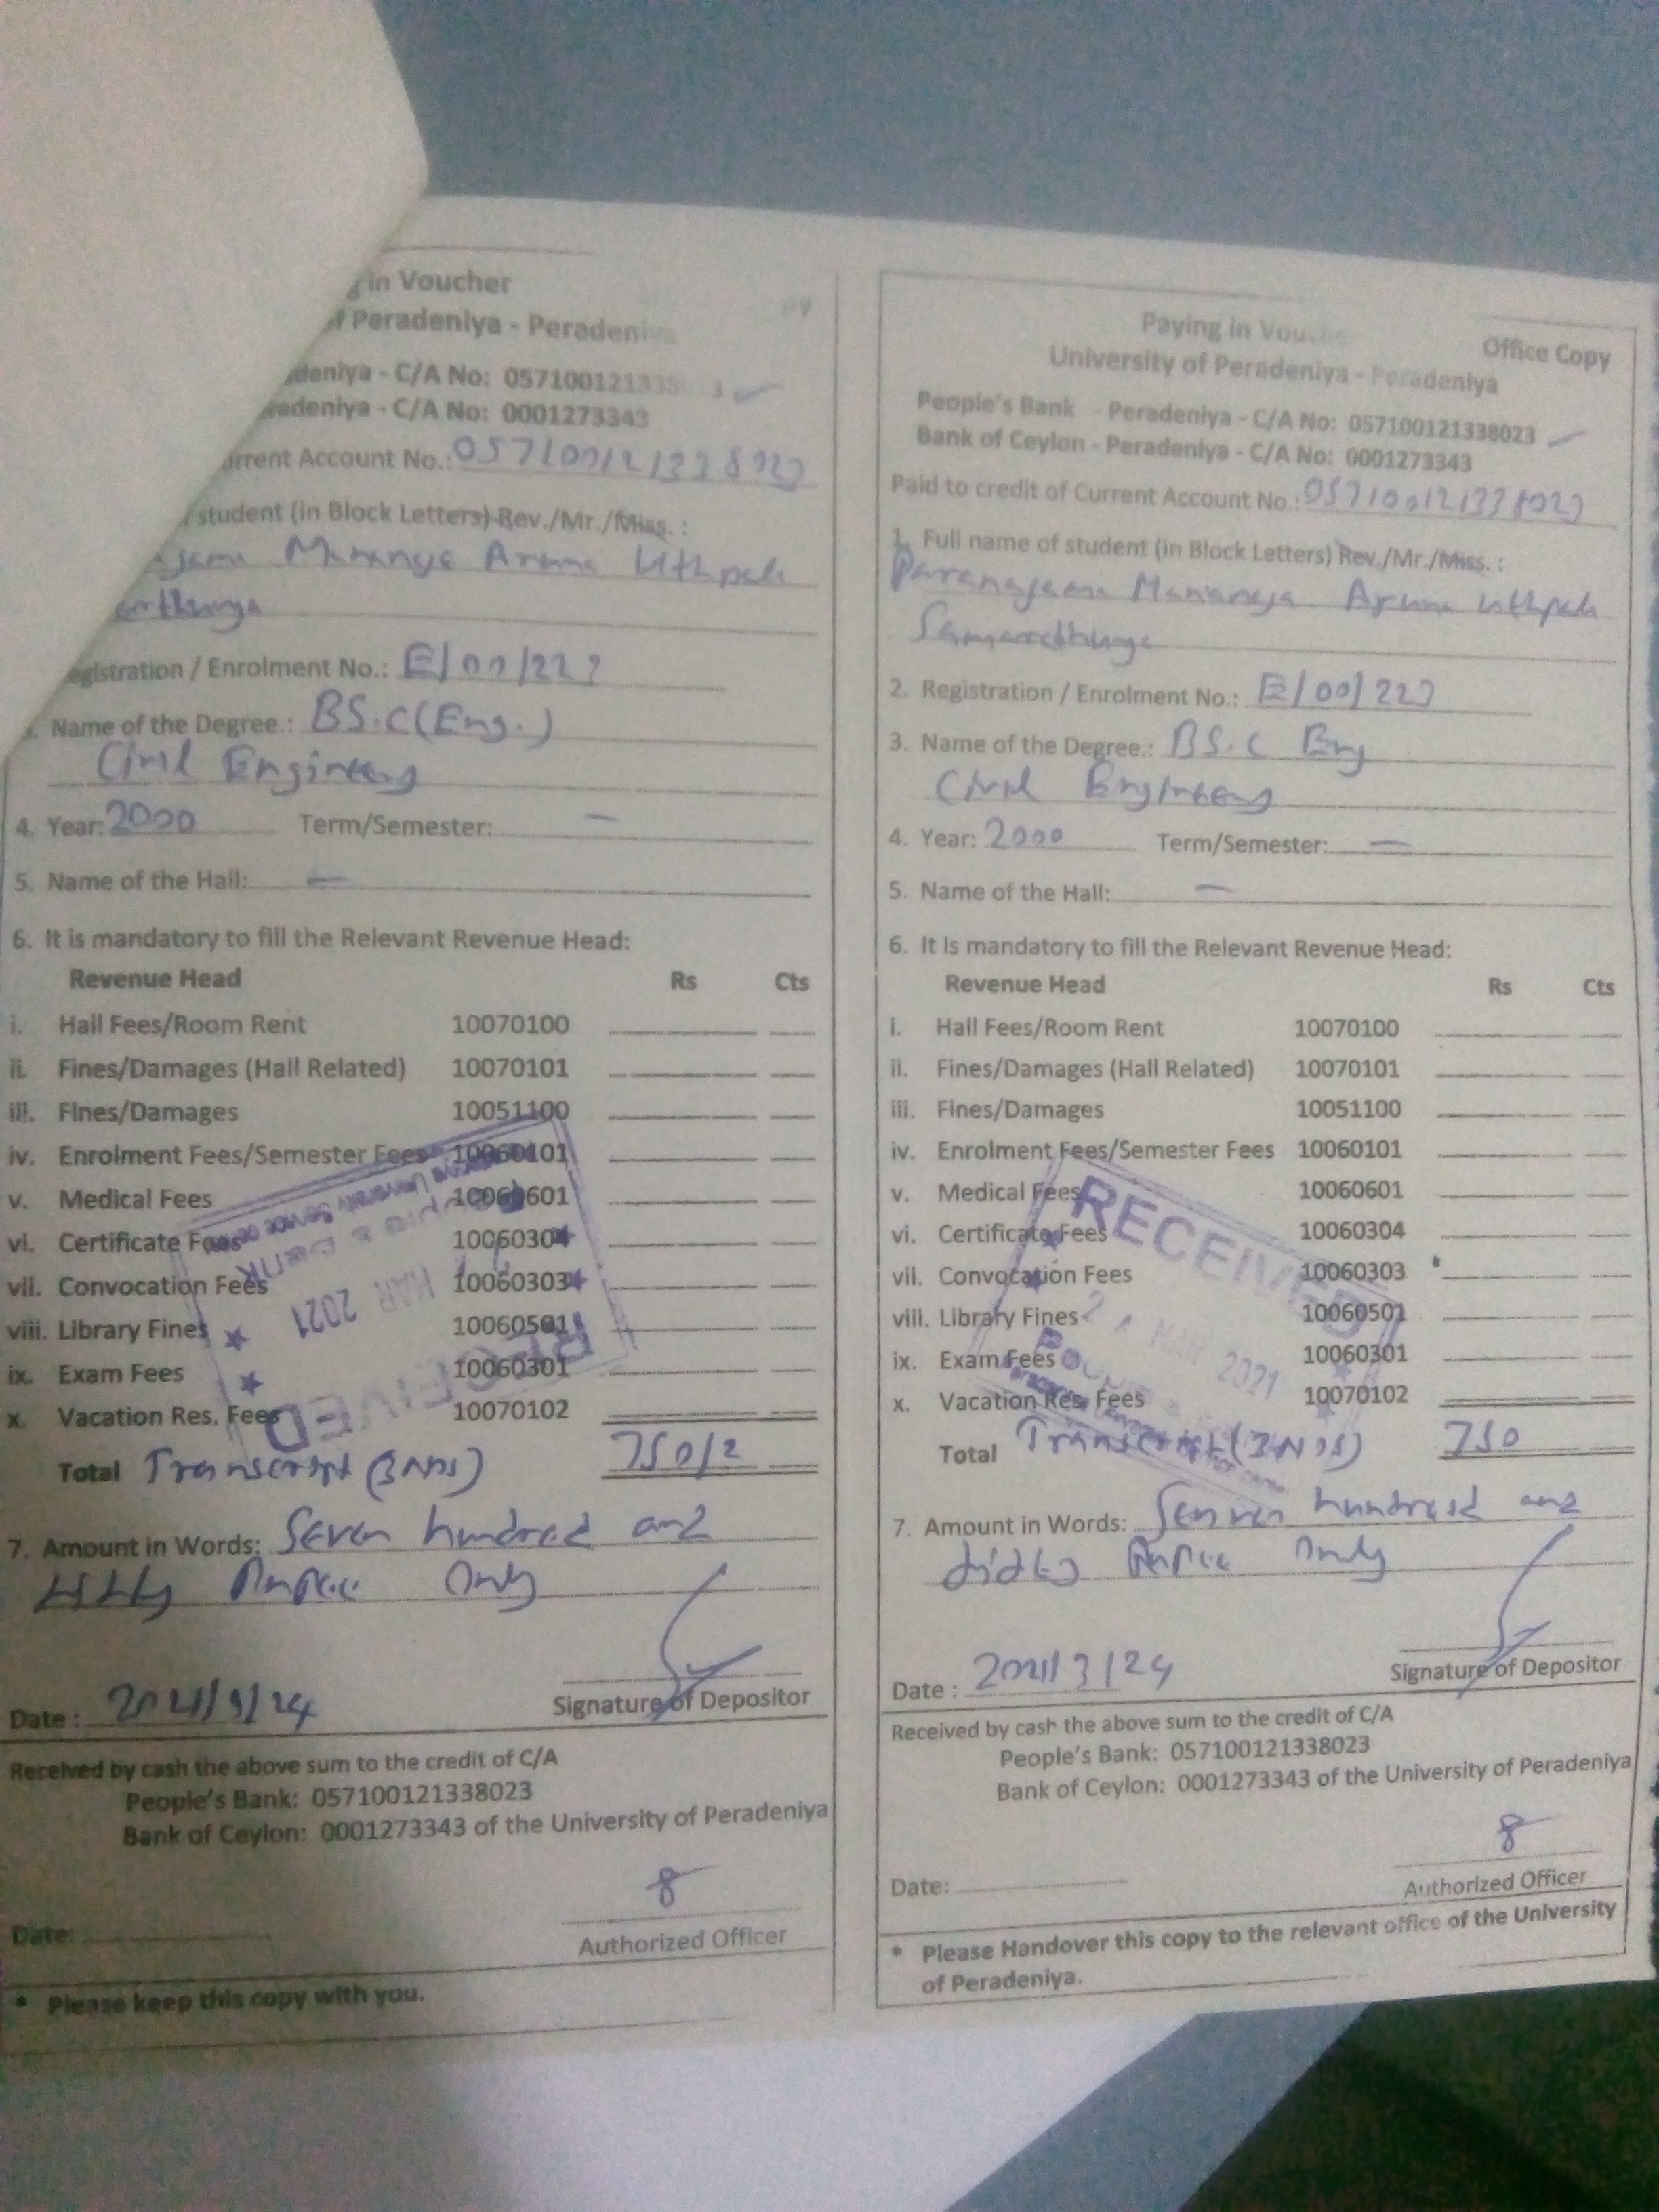 in Voucher
f Peradeniya - Peradeniya
deniya - C/A No: 057100121338023
radeniya - C/A No: 0001273343
urrent Account No.: 057100121338023
student (in Block Letters) Rev./Mr./Miss. :
Aruna Uthpala
egistration / Enrolment No.: E/00/227
Name of the Degree.: BS.C (Eng.)
Civil Engineering
4. Year: 2000 Term/Semester: —
5. Name of the Hall: —
6. It is mandatory to fill the Relevant Revenue Head:
Revenue Head Rs Cts
i. Hall Fees/Room Rent 10070100
ii. Fines/Damages (Hall Related) 10070101
iii. Fines/Damages 10051100
iv. Enrolment Fees/Semester Fees 10060101
v. Medical Fees 10060601
vi. Certificate Fees 10060304
vii. Convocation Fees 10060303
viii. Library Fines 10060501
ix. Exam Fees 10060301
x. Vacation Res. Fees 10070102
RECEIVED
MAR 2021
Total Transcript (3 Nos) 750/2
7. Amount in Words: Seven hundred and
fifty Rupee Only
Date : 2021/3/24 Signature of Depositor
Received by cash the above sum to the credit of C/A
People's Bank: 057100121338023
Bank of Ceylon: 0001273343 of the University of Peradeniya
8
Date: Authorized Officer
* Please keep this copy with you.
Office Copy
Paying in Voucher
University of Peradeniya - Peradeniya
People's Bank - Peradeniya - C/A No: 057100121338023
Bank of Ceylon - Peradeniya - C/A No: 0001273343
Paid to credit of Current Account No.: 057100121338023
1. Full name of student (in Block Letters) Rev./Mr./Miss. :
Aruna Uthpala
2. Registration / Enrolment No.: E/00/227
3. Name of the Degree.: BS.C Eng
Civil Engineering
4. Year: 2000 Term/Semester: —
5. Name of the Hall: —
6. It is mandatory to fill the Relevant Revenue Head:
Revenue Head Rs Cts
i. Hall Fees/Room Rent 10070100
ii. Fines/Damages (Hall Related) 10070101
iii. Fines/Damages 10051100
iv. Enrolment Fees/Semester Fees 10060101
v. Medical Fees 10060601
vi. Certificate Fees 10060304
vii. Convocation Fees 10060303
viii. Library Fines 10060501
ix. Exam Fees 10060301
x. Vacation Res. Fees 10070102
RECEIVED
24 MAR 2021
Total Transcript (3 Nos) 750
7. Amount in Words: hundred and
fifty Rupee Only
Date : 2021/3/24 Signature of Depositor
Received by cash the above sum to the credit of C/A
People's Bank: 057100121338023
Bank of Ceylon: 0001273343 of the University of Peradeniya
8
Date: Authorized Officer
* Please Handover this copy to the relevant office of the University
of Peradeniya.